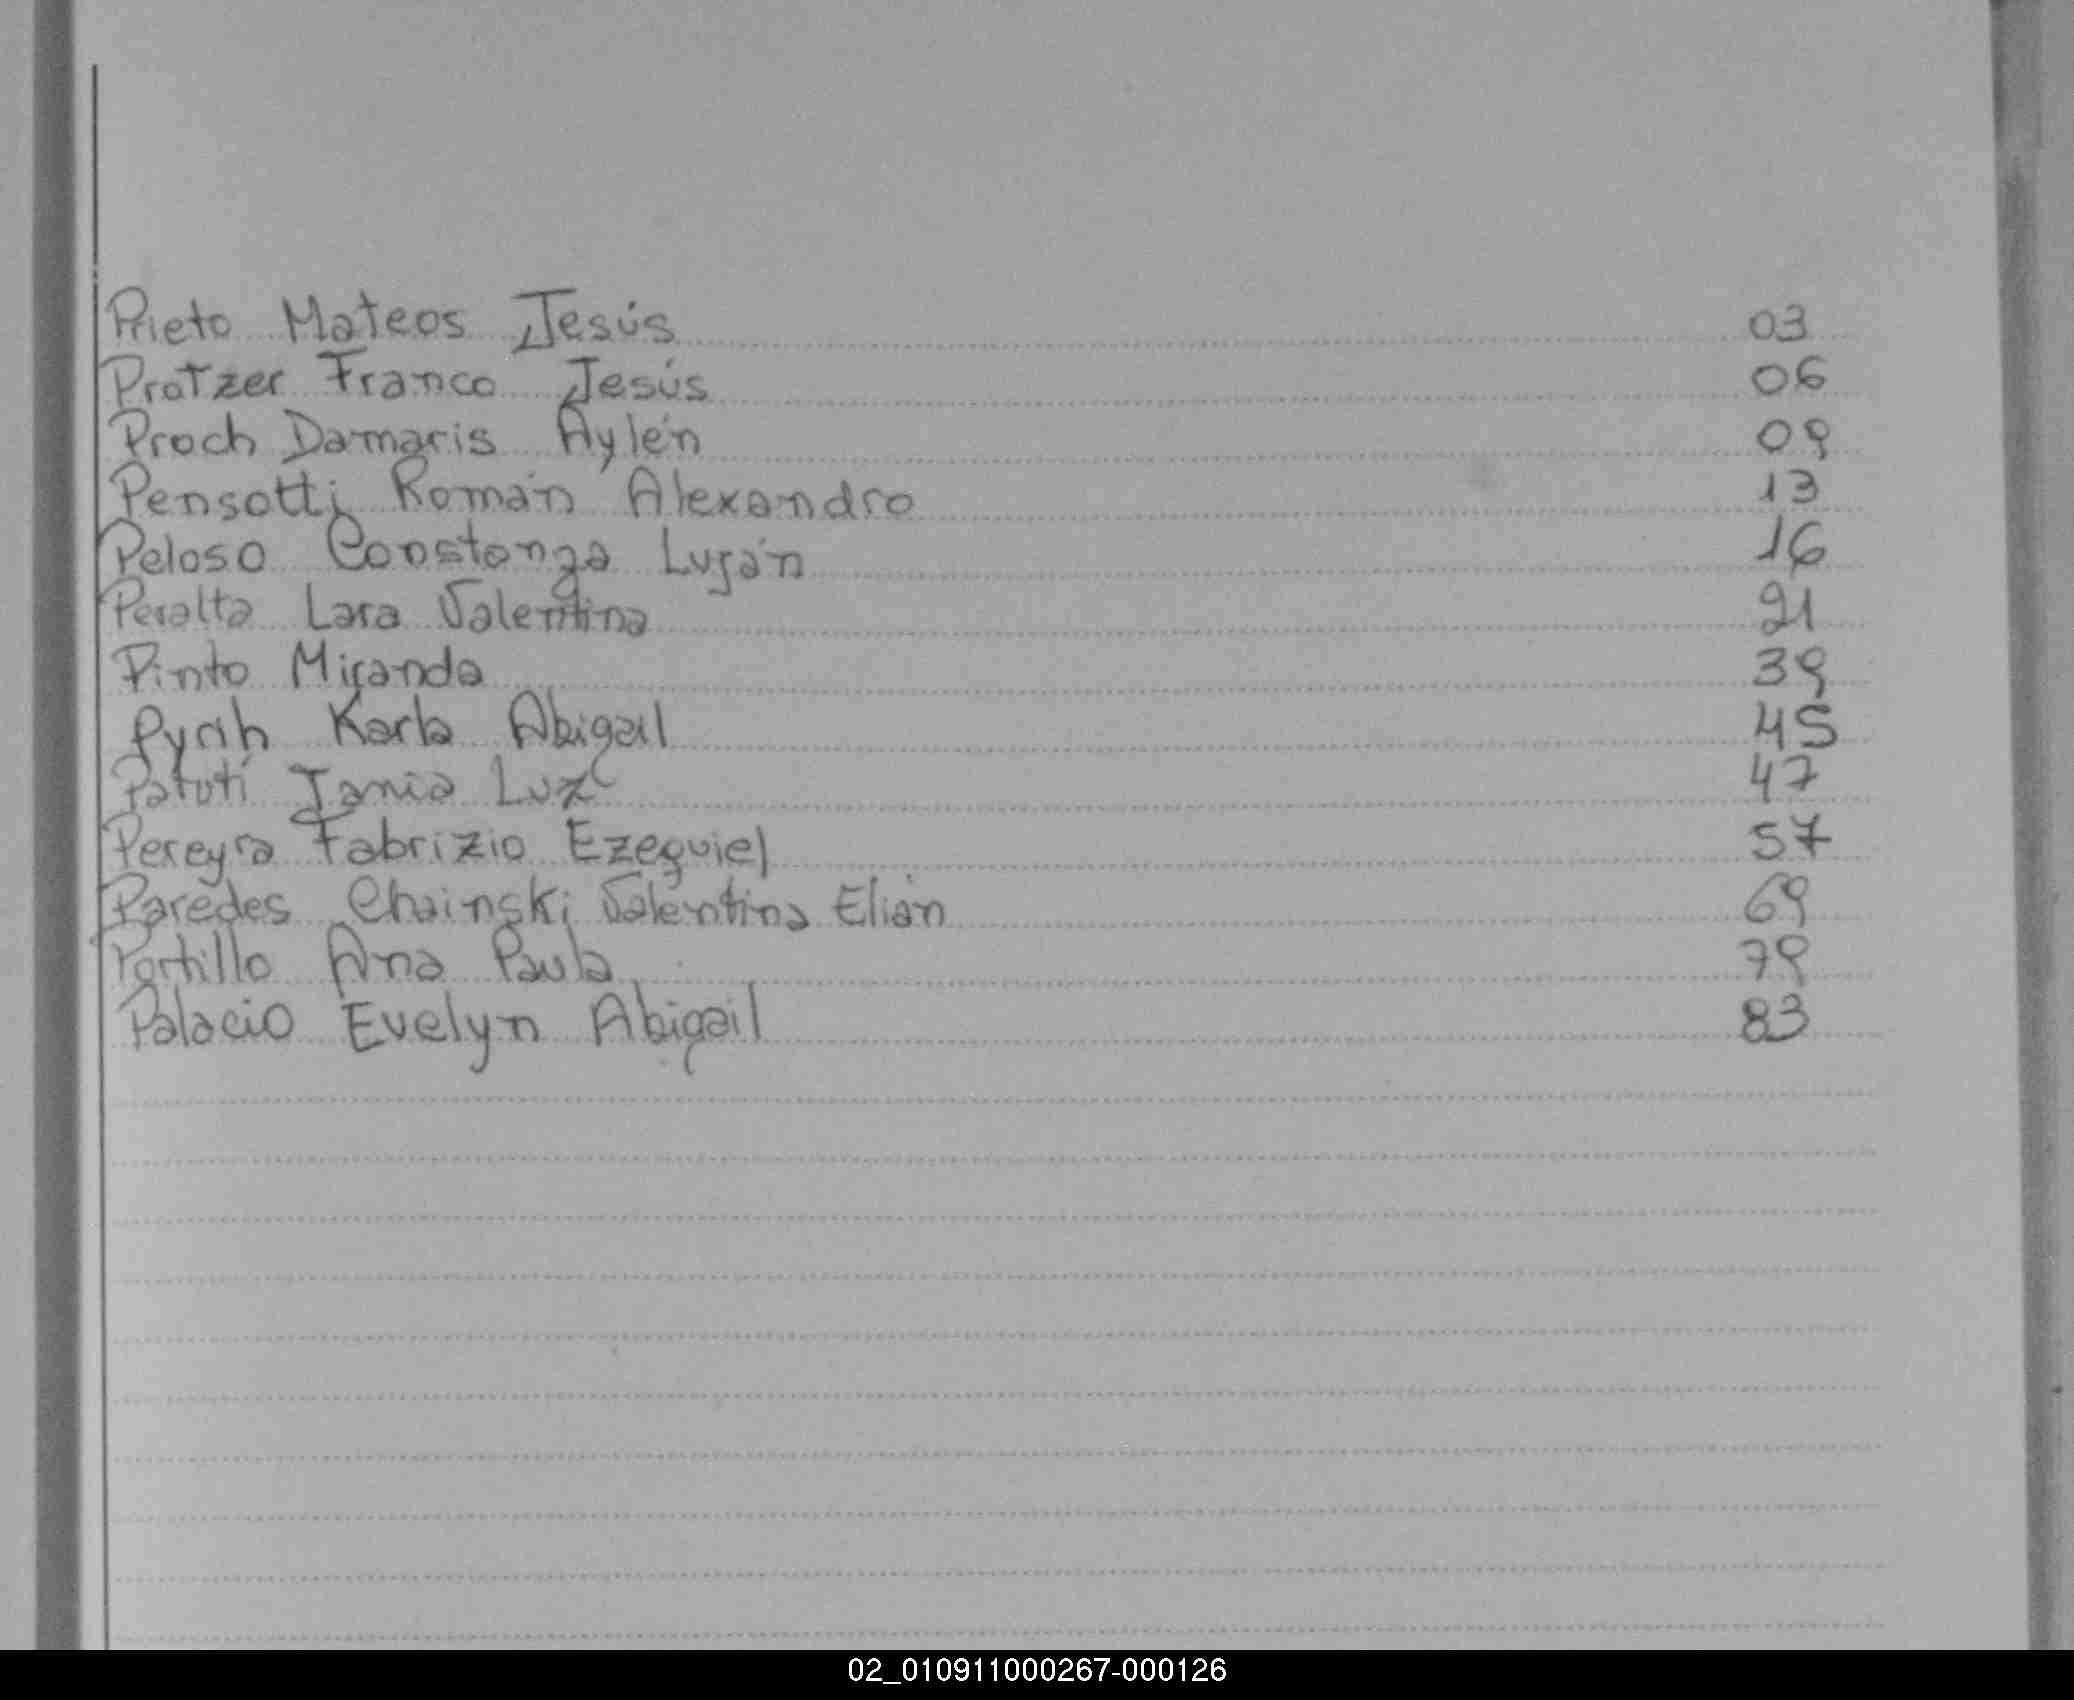 Prieto Mateos Jesús 03
Pratzer Franco Jesús 06
Proch Damaris Aylén 09
Pensotti Román Alexandro 13
Peloso Constanza Luján 16
Peralta Lara Valentina 21
Pinto Miranda 39
Karla Abigail 45
Luz 47
Pereyra Fabrizio Ezequiel 57
Paredes Chainski Valentina Elián 69
Portillo Ana Paula 79
Palacio Evelyn Abigail 83
02_010911000267-000126